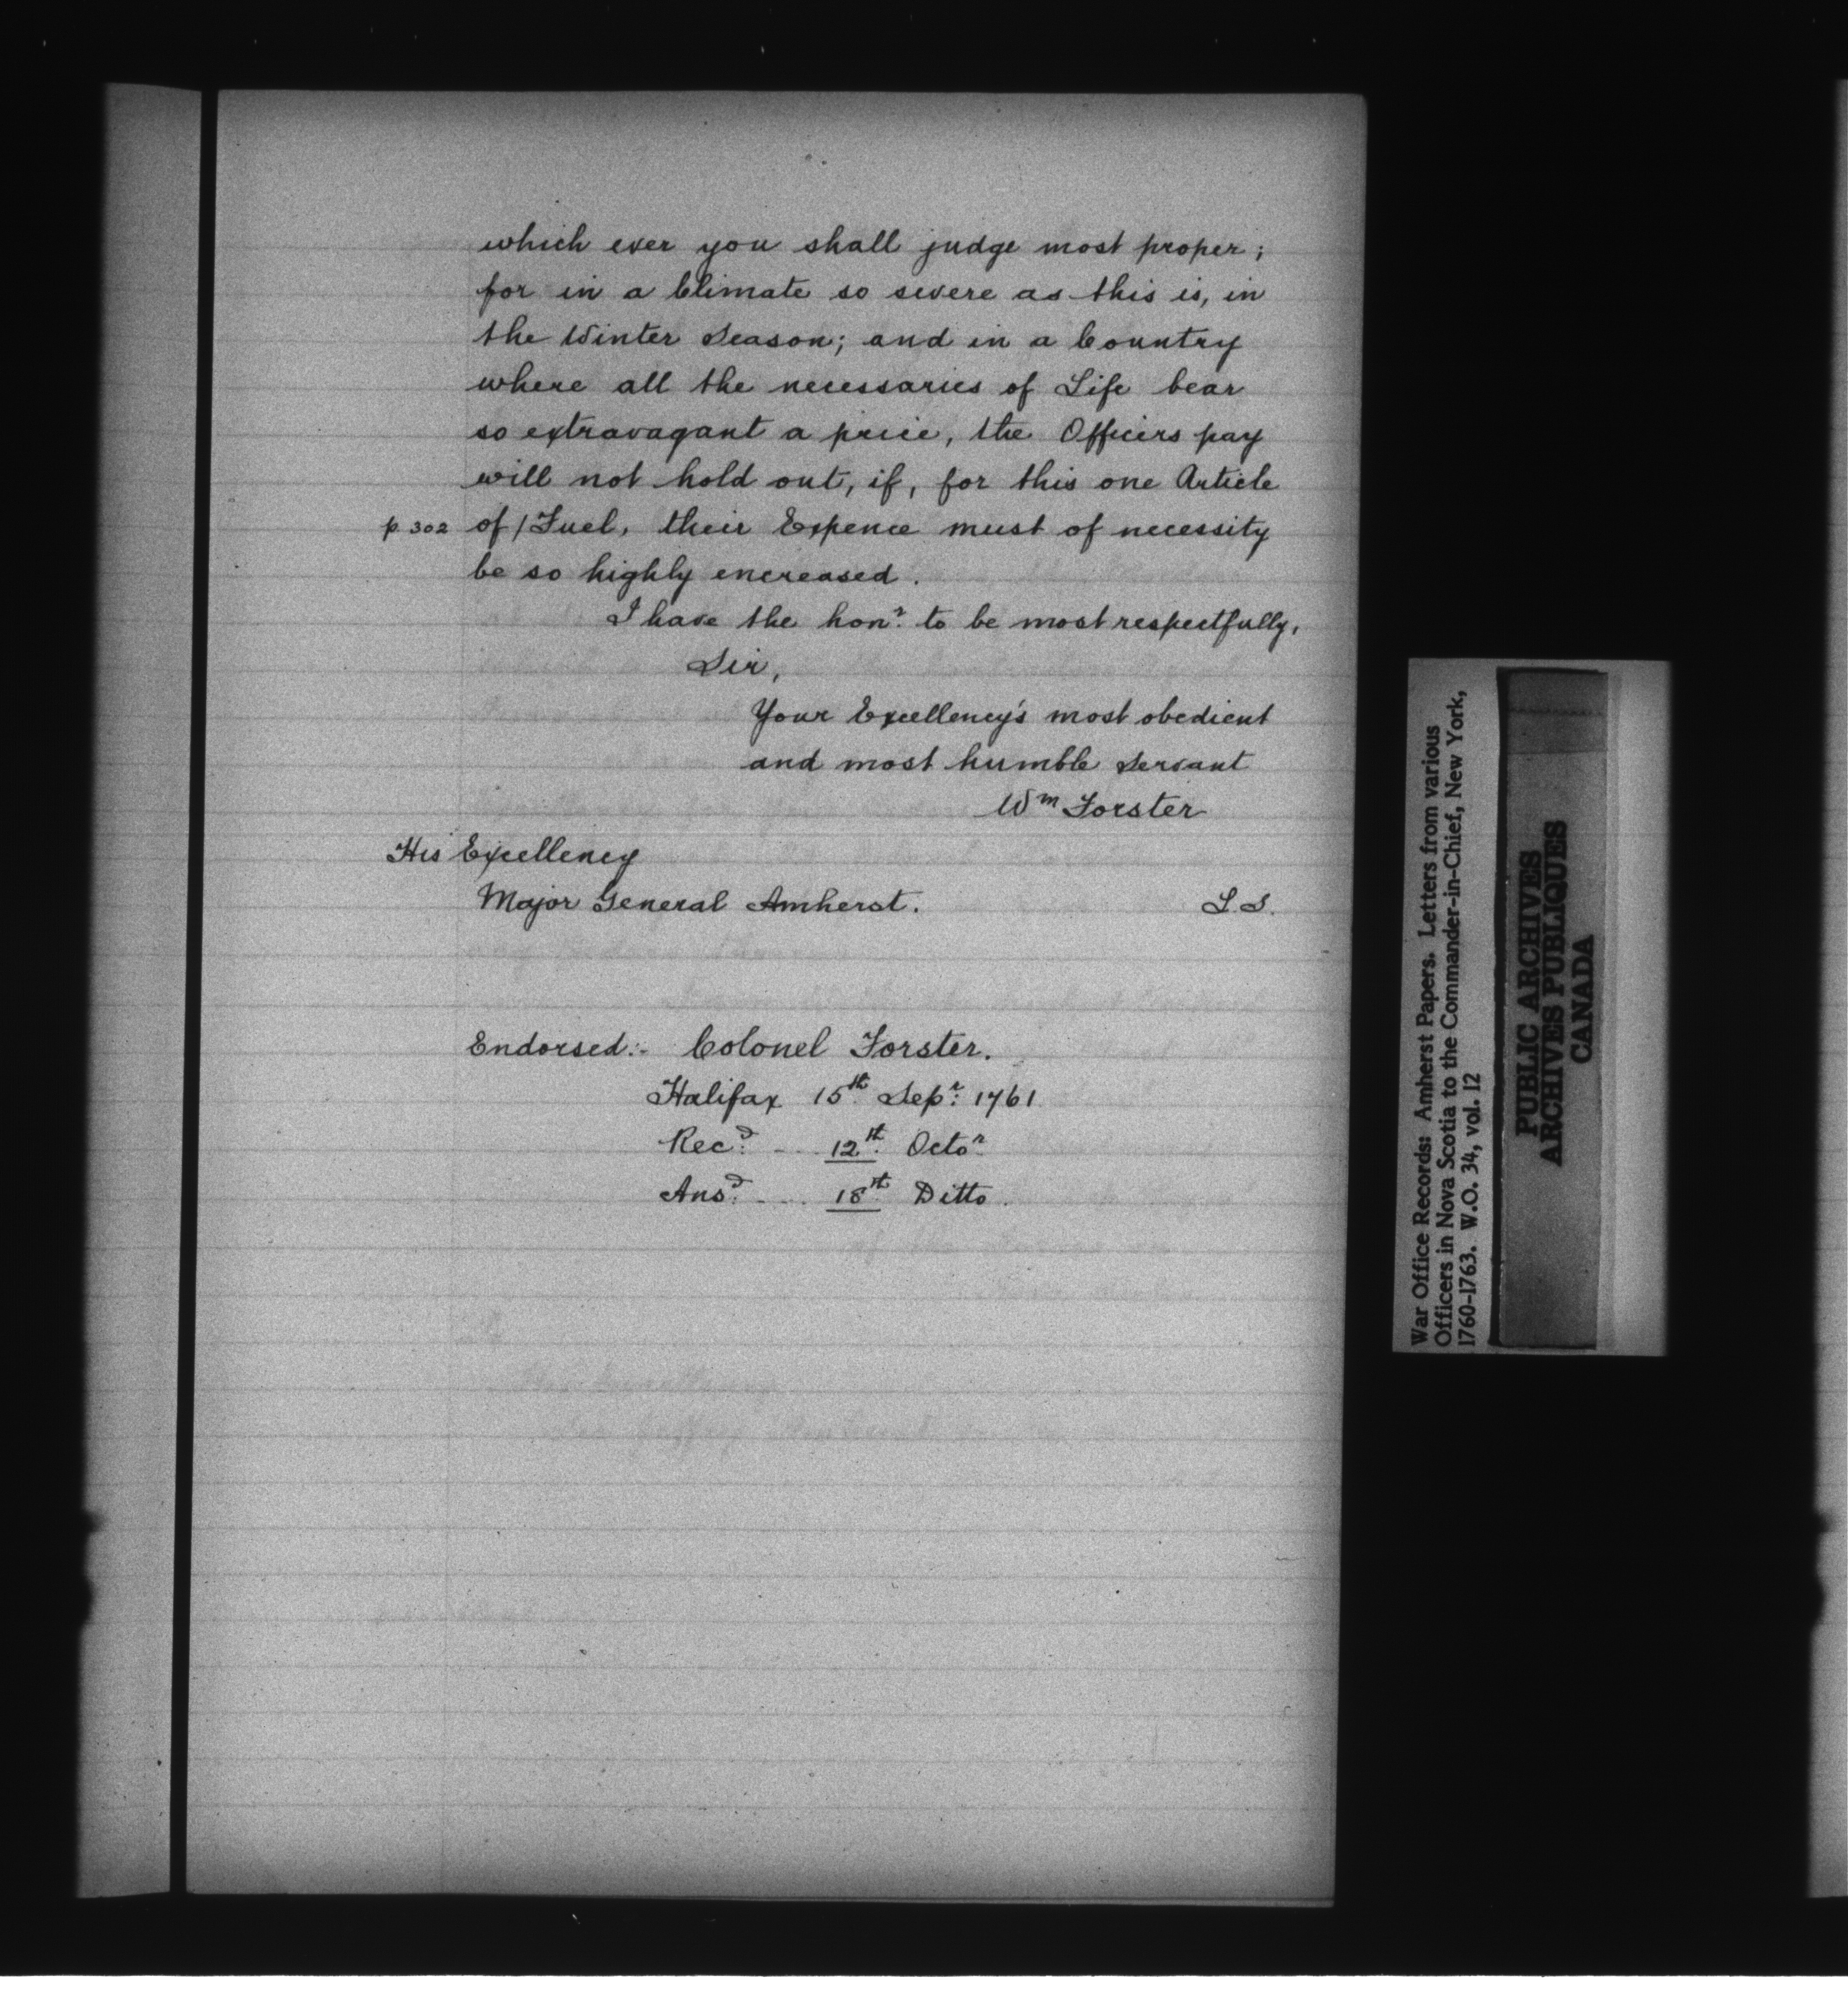 which ever you shall judge most proper;
for in a Climate so severe as this is, in
the Winter Season; and in a Country
where all the necessaries of Life bear
so extravagant a price, the Officers pay
will not hold out, if, for this one Article
p. 302 of / Fuel, their Expence must of necessity
be so highly encreased.
I have the honr. to be most respectfully,
Sir,
Your Excellency's most obedient
and most humble Servant
Wm Forster
His Excellency
Major General Amherst.
L.S.
Endorsed:- Colonel Forster.
Halifax 15th. Sepr: 1761
Recd: - ... 12th. Octor.
Ansd: - ... 18th. Ditto.
War Office Records: Amherst Papers. Letters from various
Officers in Nova Scotia to the Commander-in-Chief, New York,
1760-1763. W.O. 34, vol. 12
PUBLIC ARCHIVES
ARCHIVES PUBLIQUES
CANADA